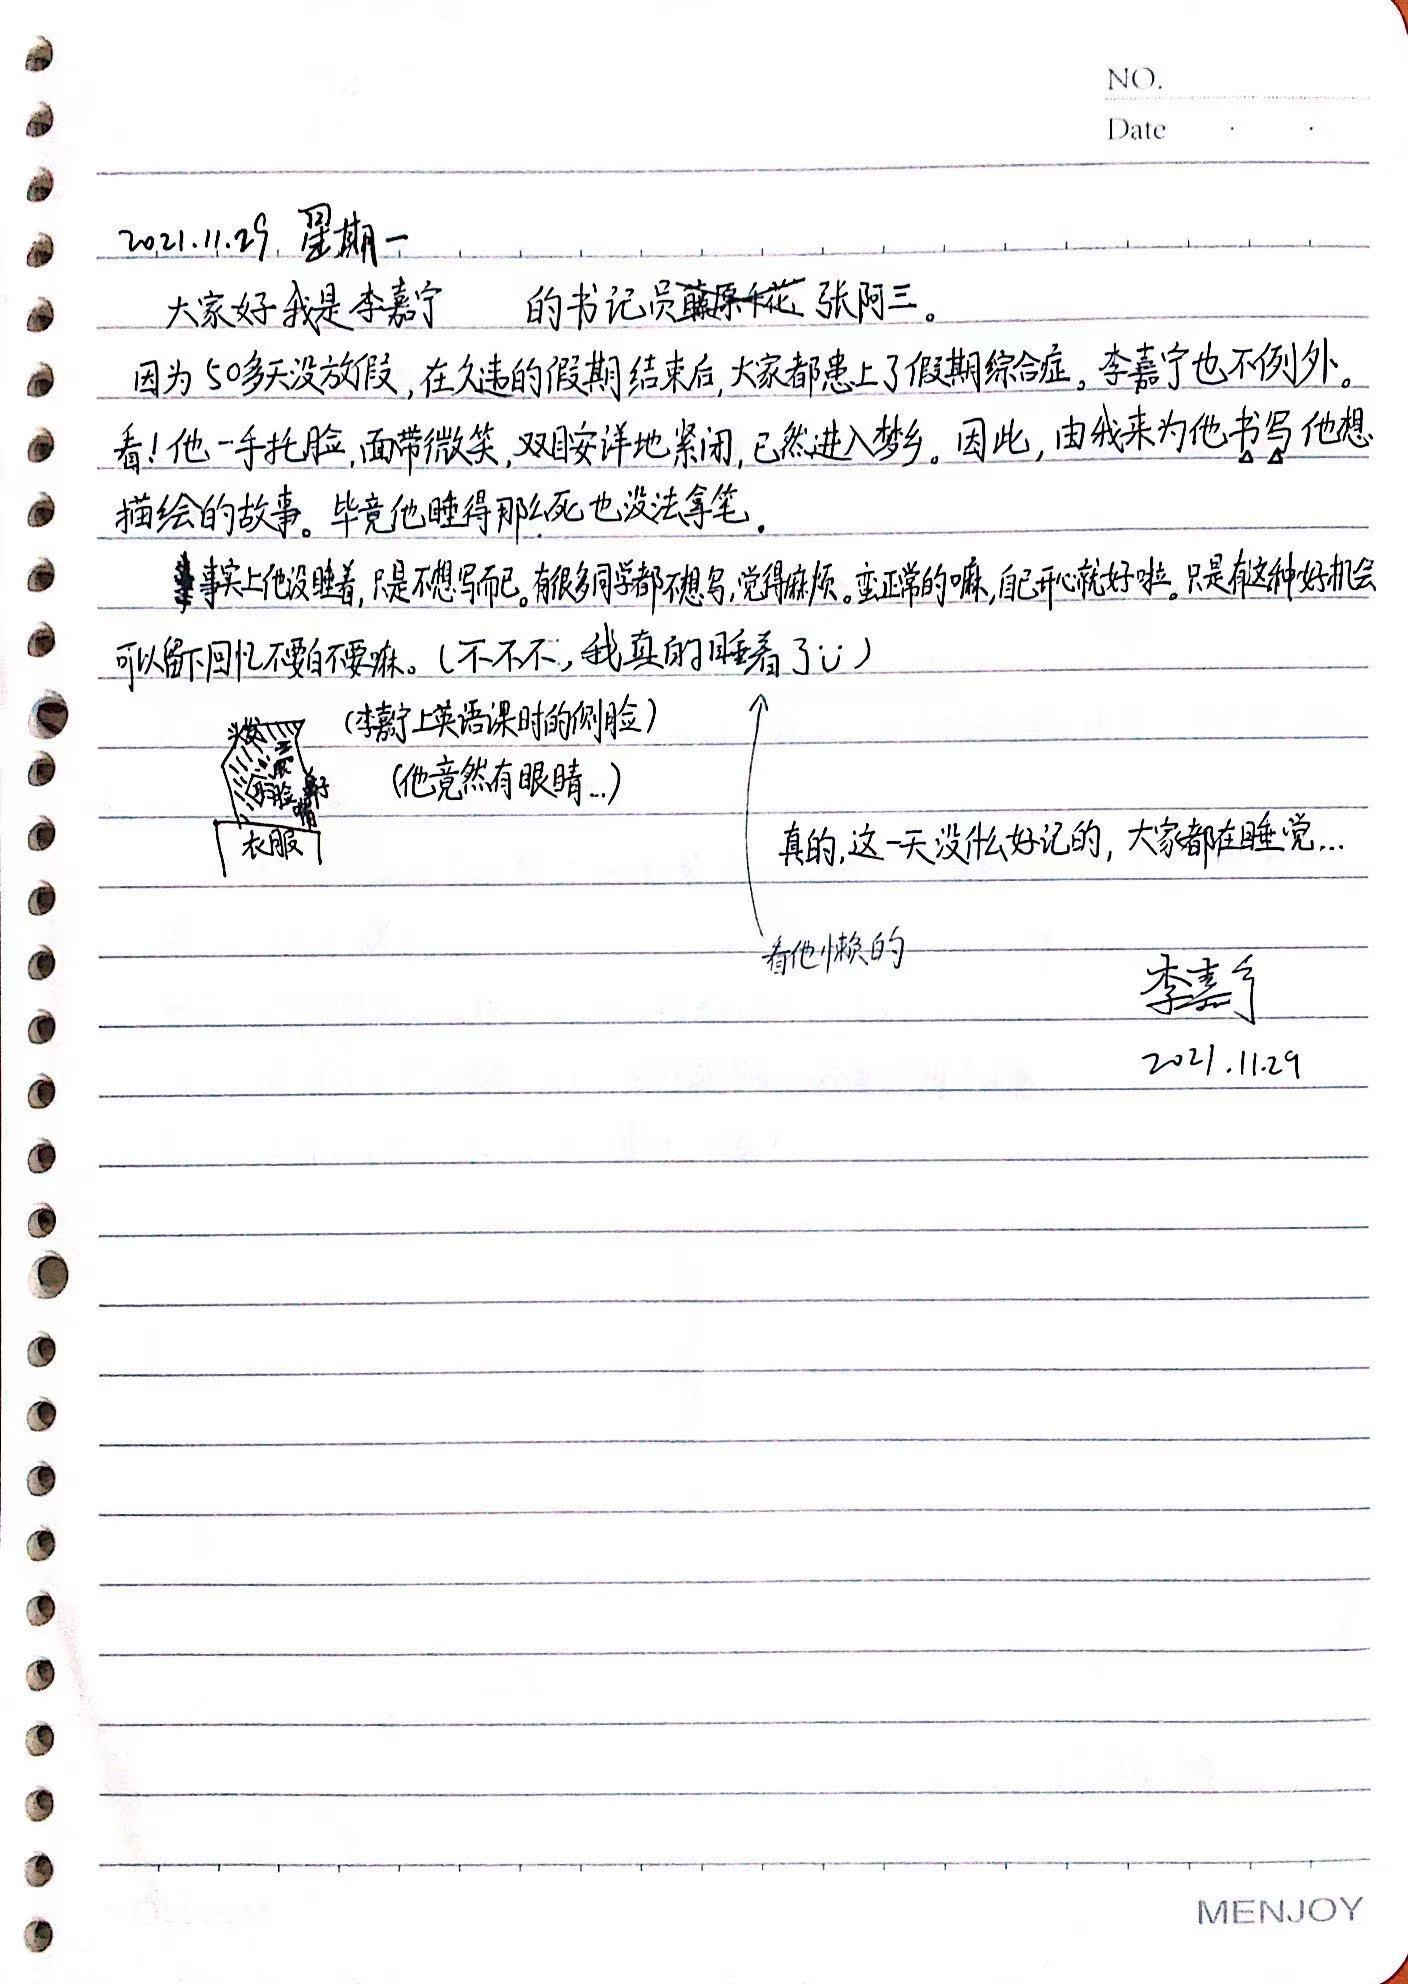 NO.
Date
2021.11.29 星期一
大家好我是李嘉宁 的书记员藤原千花 张阿三。
因为50多天没放假,在久违的假期结束后,大家都患上了假期综合症。李嘉宁也不例外。
看!他一手托脸,面带微笑,双目安详地紧闭,已然进入梦乡。因此,由我来为他书写他想
描绘的故事。毕竟他睡得那么死也没法拿笔.
事实上他没睡着,只是不想写而已。有很多同学都不想写,觉得麻烦。蛮正常的嘛,自己开心就好啦。只是有这种好机会
可以留下回忆不要白不要嘛。(不不不,我真的睡着了)
(李嘉宁上英语课时的侧脸)
(他竟然有眼睛...)
头发
脸
鼻子
嘴
衣服
真的,这一天没什么好记的,大家都在睡觉...
看他懒的
李嘉宁
2021.11.29
MENJOY